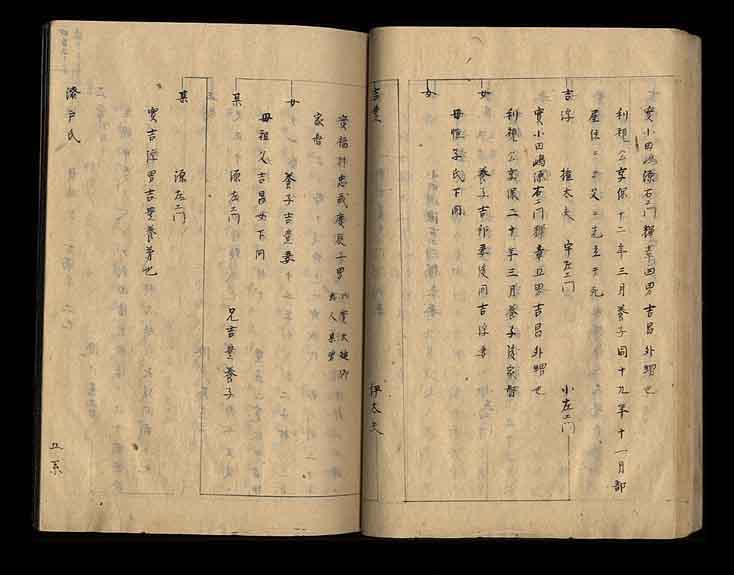 實小田嶋源右エ門輝幸四男吉昌外甥也
利視公享保十二年三月養子同十九年十一月部
屋住ニテ父ニ先立テ死
吉淳 権太夫 宇左エ門 小左エ門
實小田嶋源右エ門輝章五男吉昌外甥也
利視公享保二十年三月養子後家督
女 養子吉 妻後同吉淳妻
女 母恒子氏下同
吉豊 伊太夫
實福井忠 慶辰子男
家督
女 養子吉豊妻
母祖父吉昌女下同
某 源左エ門 兄吉豊養子
某 源左エ門
實吉淳男吉豊養弟也
澄戸氏 五系